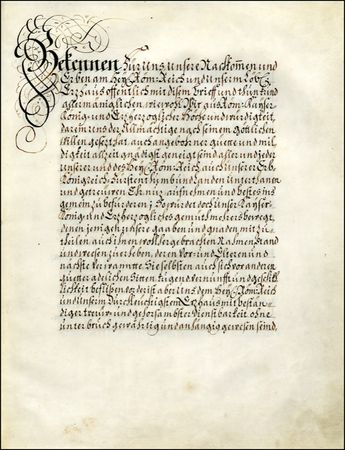 Bekennen Für Uns Unsere Nachkom̄en und
Erben am Heyl: Röm: Reich und Unserm Lobl:
Erzhaus offentlich mit disem Brieff und thun kund
allermäniglichen, wie wohl Wir aus Röm: Kayser:
König: und Erzherzoglicher Höhe und würdigkeit,
darinn uns der Allmächtige nach seinem göttlichen
Willen gesezt hat, auch angebohrner guette und mil
digkeit allzeit gnädigst geneigt seind aller und jeder
unserer und des Heyl: Röm: Reichs auch unserer Erb
Königreich Fürstenthumb und Landen Unterthanen
und getreuen Ehr, Nuz, aufnehmen und bestes ins
gemein zu befürderen; So würdet doch Unser Kayser:
König: und Erzherzogliches gemüt mehrers bewegt,
denen jenigen Unsere gaaben und gnaden mit zu
theilen auch Ihnen hergebrachten Nahmen Stand
und wesen zuerheben, deren Vor-Elteren und
nächste Verwannte Sie selbsten auch sich vor anderen
guetter adelichen Sitten tugend vernunfft und geschik
lichkeit beflissen vorderist aber Uns dem Heyl: Röm: Reich
und Unserm Durchleuchtigisten Erzhaus mit bestän
diger treu- und gehorsambster dienstbarkeit ohne
unterbruch gewärtig und anhängig gewesen seind,